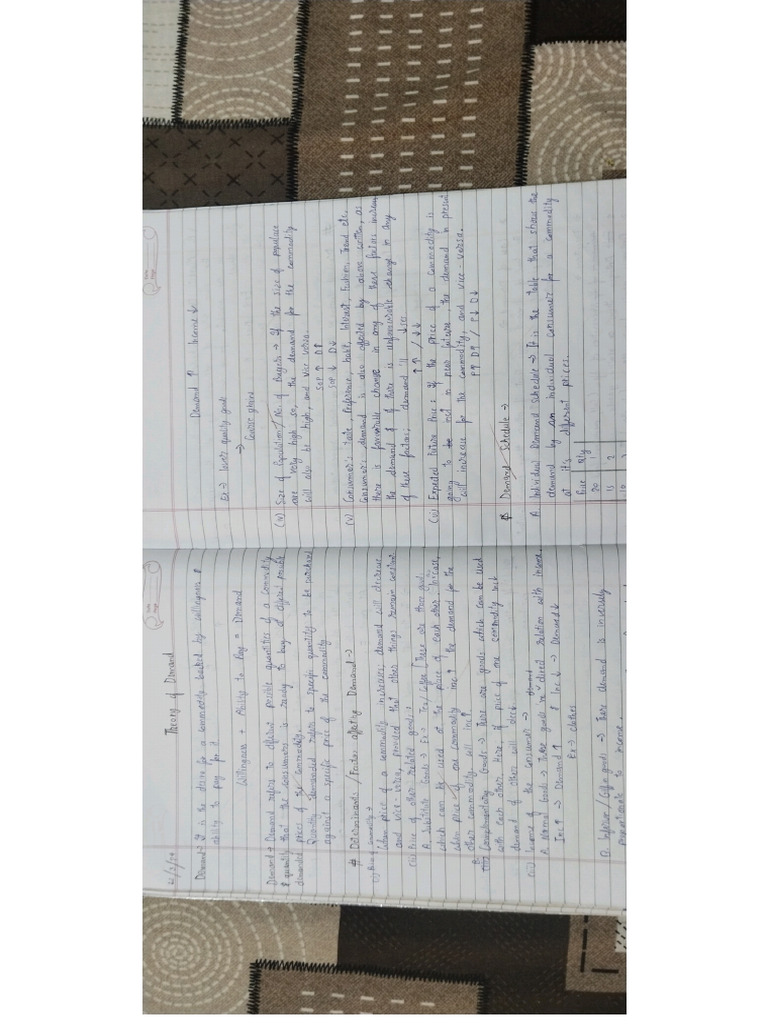 Theory of Demand
Demand → It is the desire for a commodity backed by willingness &
ability to pay for it
Willingness + Ability to Pay = Demand
Demand → Demand refers to different possible quantities of a commodity
that the consumer is ready to buy at different possible
prices of the commodity.
& quantity demanded
Quantity demanded refers to specific quantity to be purchased
against a specific price of the commodity
# Determinants / Factors affecting Demand →
(i) Price of commodity →
When price of a commodity increases, demand will decrease
and vice-versa, provided that other things remain constant
(ii) Price of other related goods:
A. Substitute Goods → Ex → Tea / Coffee [These are those goods
which can be used at the place of each other. Incase,
when price of one commodity inc ↑ the demand for the
other commodity will inc ↑
B. Complementary Goods → There are goods which can be used
with each other. Here, if price of one commodity inch
demand of other will
(iii) Income of the consumer →
A. Normal Goods → These goods 've direct demand relation with Income.
Inc ↑ → Demand ↑ & Inc ↓ → Demand ↓
Ex → clothes
B. Inferior / Giffin goods → There demand is inversly
proportionate to income.
Demand ↑ Income ↓
Ex → lower quality goods
→ Coarse grains
(iv) Size of Population / No. of Buyers → If the size of populace
are very high so, the demand for the commodity
will also be high, and vice versa.
SOP ↑ D↑
SOP ↓ D↓
(v) Consumer's taste, Preference, habit, Interest, Fashion, Trend etc.
Consumer's demand is also affected by above written, as
there is favourable change in any of these factors increase
the demand & if there is unfavourable change in any
of these factors, demand 'll
↑ ↑ / ↓ ↓
Expected Future Price: If the price of a commodity is
going to inst in near future the demand in present
will increase for the commodity, and vice-versa.
P↑ D↑ / P↓ D↓
Demand Schedule →
A. Individual Demand Schedule → It is the table that shows the
demand by an individual consumer for a commodity
at it's different prices.
Price Qty
20 1
15 2
10